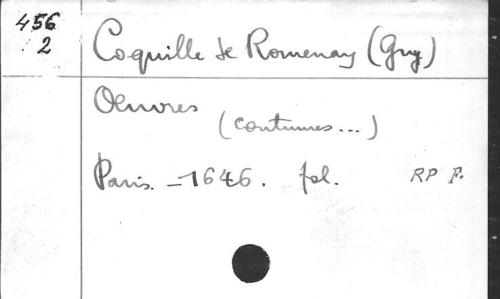 456
2
Coquille de Romenay (Guy)
Oeuvres
(coutumes...)
Paris. - 1646. fol. RP F.